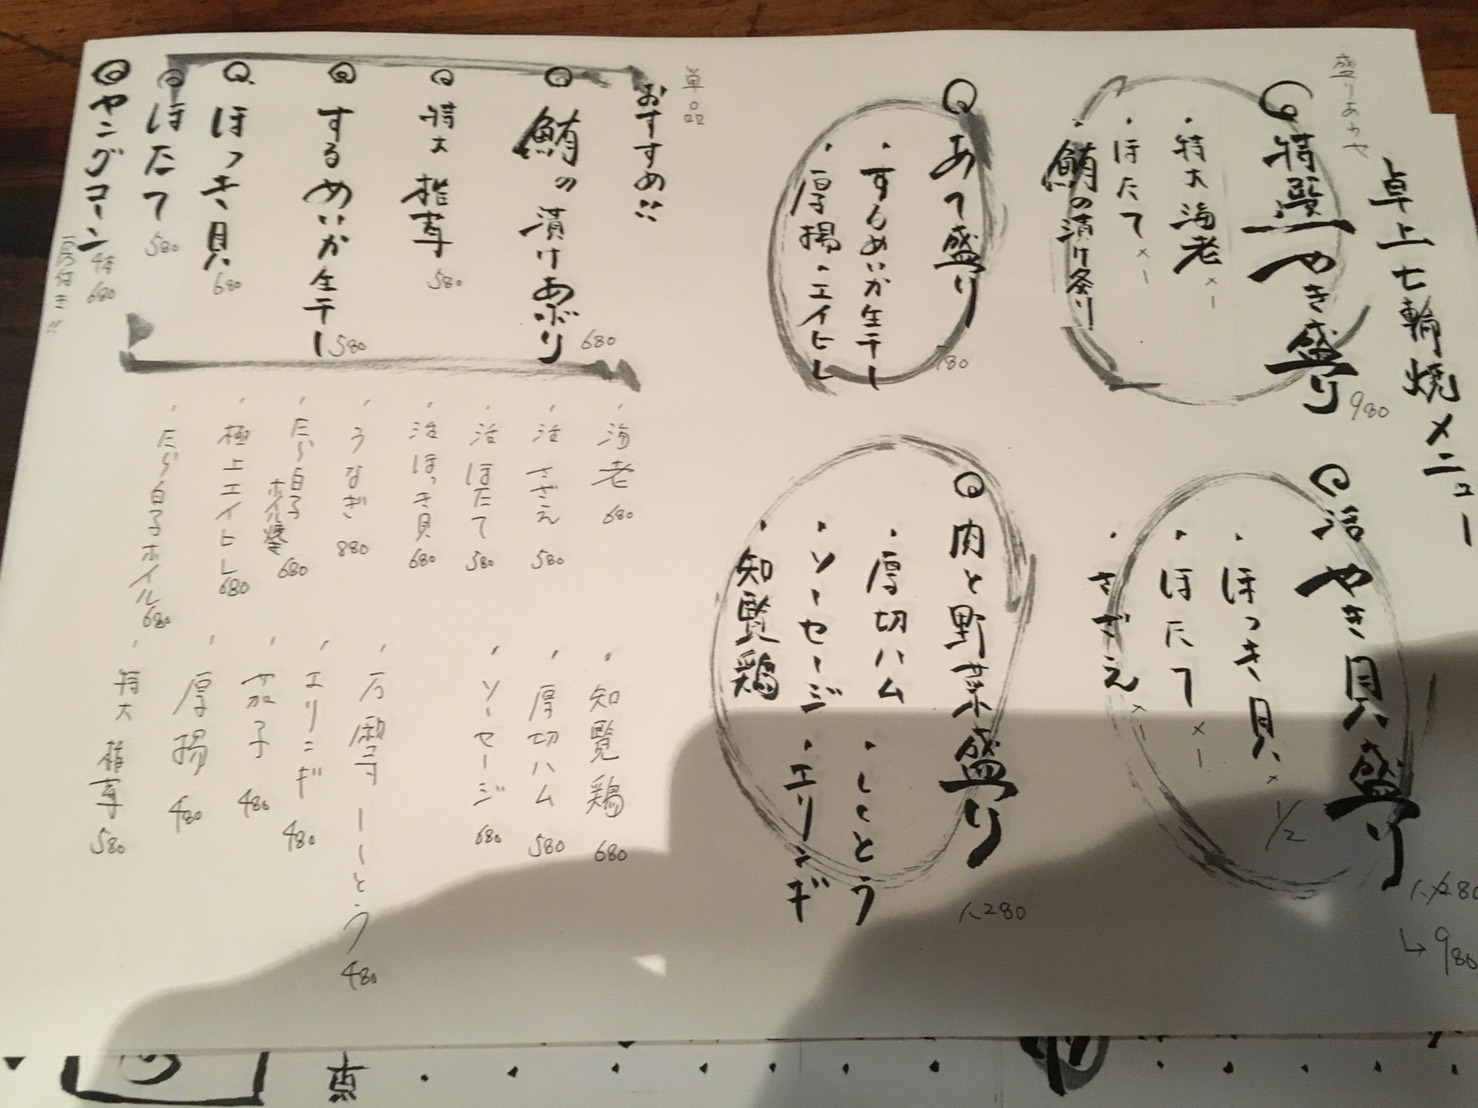 卓上七輪焼メニュー
盛りあわせ
特選やき盛り 980
・特大海老 ×1
・ほたて ×1
・鮪の漬け炙り
活やき貝盛り 1,280
↳980
・ほっき貝 ×1/2
・ほたて ×1
・さざえ ×1
あて盛り 780
・するめいか生干し
・厚揚・エイヒレ
肉と野菜盛り 1,280
・厚切ハム ・ししとう
・ソーセージ ・エリンギ
・知覧鶏
単品
おすすめ!!
鮪の漬けあぶり 680
特大椎茸 580
するめいか生干し 580
ほっき貝 680
ほたて 580
ヤングコーン 4本 680
・海老 680
・活さざえ 580
・活ほたて 580
・活ほっき貝 680
・うなぎ 880
・たら白子ホイル焼き 680
・極上エイヒレ 680
・たら白子ホイル 680
・知覧鶏 680
・厚切ハム 580
・ソーセージ 680
・万願寺ししとう 480
・エリンギ 480
・茄子 480
・厚揚 480
・特大椎茸 580